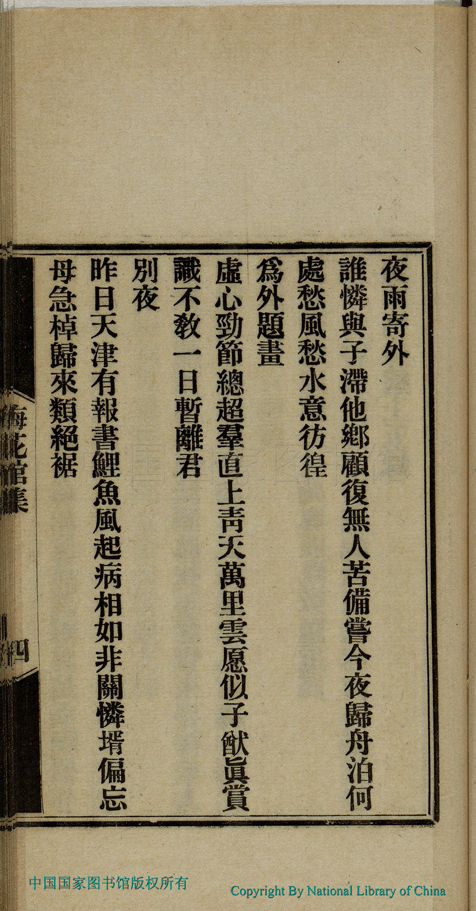 夜雨寄外
誰憐與子滯他鄉顧復無人苦備嘗今夜歸舟泊何
處愁風愁水意彷徨
爲外題畫
虛心勁節總超羣直上靑天萬里雲愿似子猷眞賞
識不敎一日暫離君
別夜
昨日天津有報書鯉魚風起病相如非關憐壻偏忘
母急棹歸來類絕裾
梅花館集
四
中国国家图书馆版权所有
Copyright By National Library of China